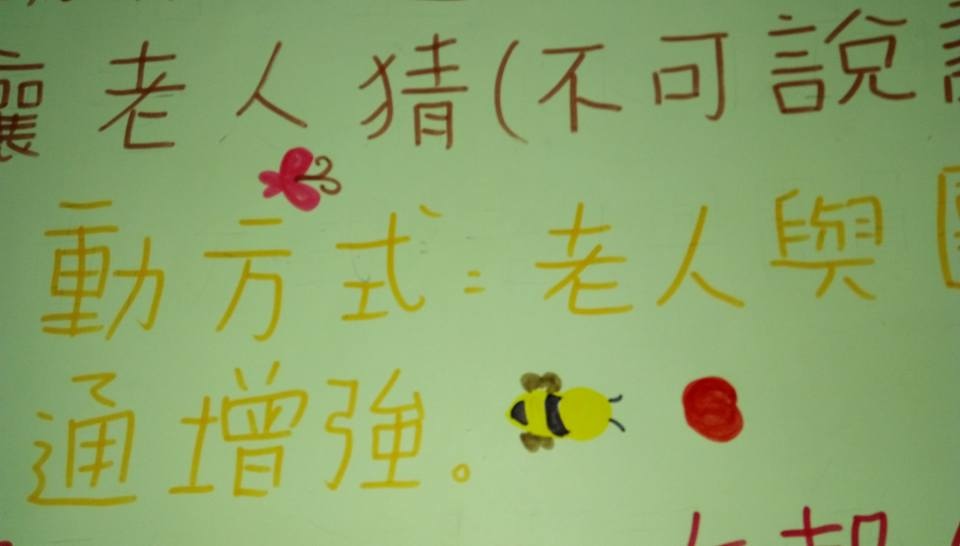 讓老人猜(不可說
動方式:老人與
通增強。